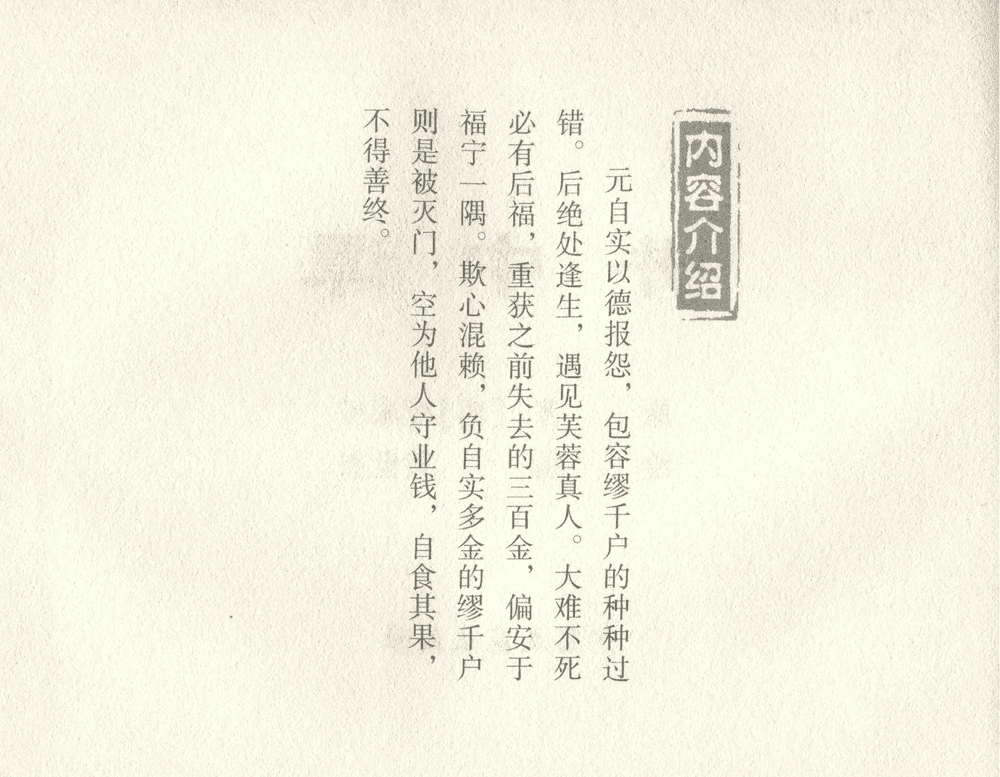 内容介绍
元自实以德报怨，包容缪千户的种种过
错。后绝处逢生，遇见芙蓉真人。大难不死
必有后福，重获之前失去的三百金，偏安于
福宁一隅。欺心混赖，负自实多金的缪千户
则是被灭门，空为他人守业钱，自食其果，
不得善终。